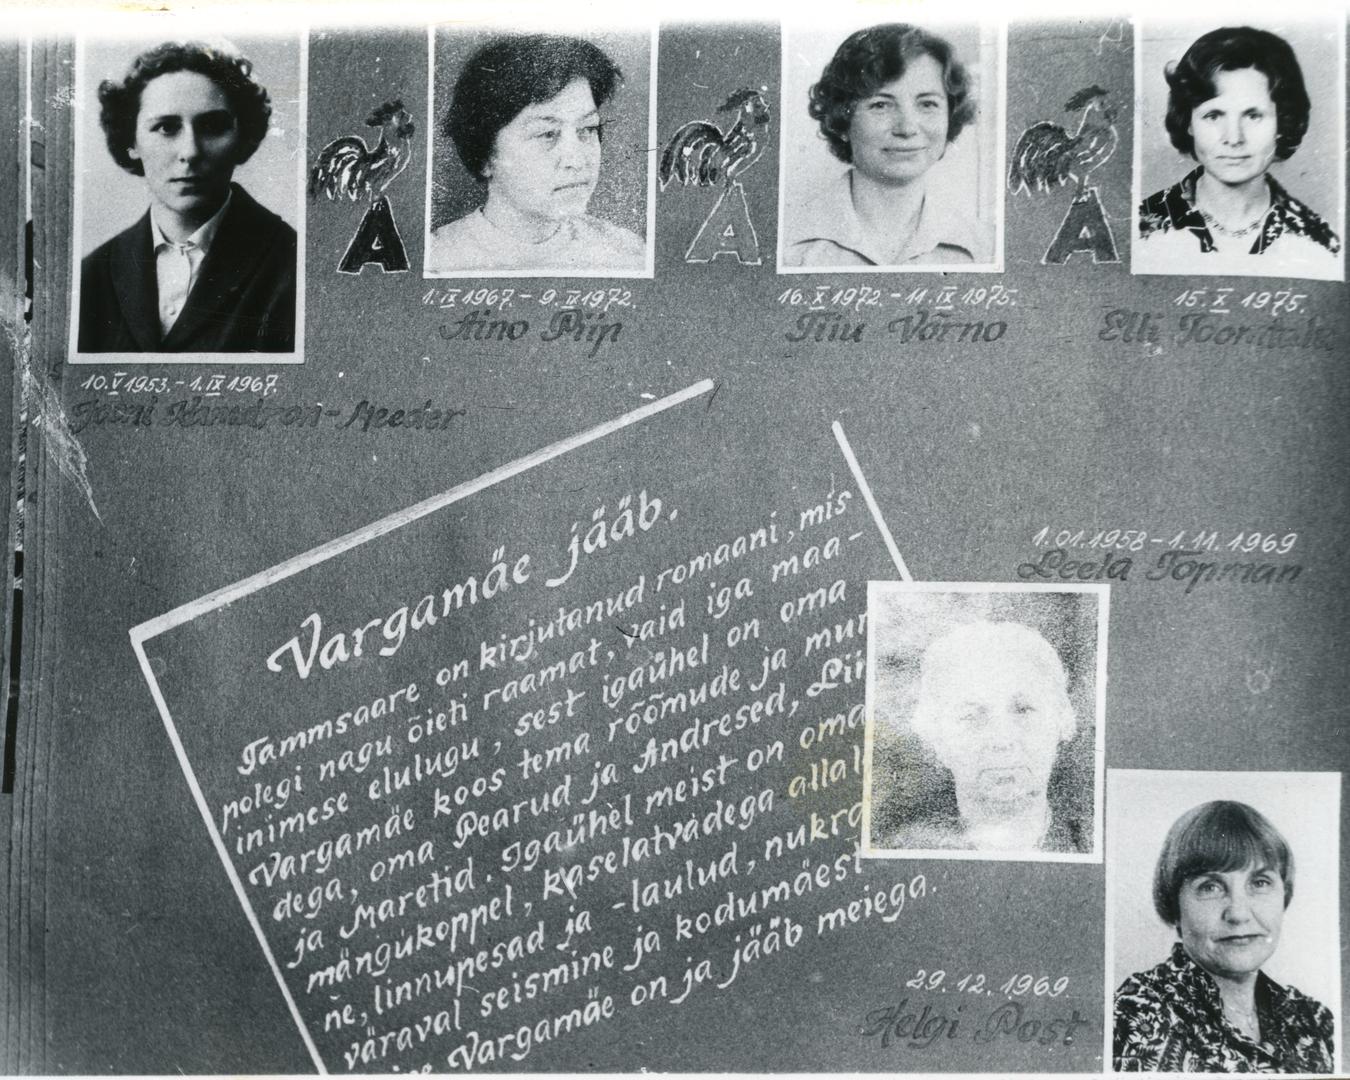 A
A
A
1. IX 1967. - 9. X 1972.
Aino Piip
16. X 1972. - 11. IX 1975.
Tiiu Võrno
15. X 1975.
Elli
10. V 1953. - 1. IX 1967.
-Meeder
Vargamäe jääb.
Tammsaare on kirjutanud romaani, mis
polegi nagu õieti raamat, vaid iga maa-
inimese elulugu, sest igaühel on oma
Vargamäe koos tema rõõmude ja mur
dega, oma Pearud ja Andresed, Lii
ja Maretid. Igaühel meist on oma
mängukoppel, kaselatvadega allal
ne, linnupesad ja -laulud, nukra
väraval seismine ja kodumäest
Vargamäe on ja jääb meiega.
1.01.1958 - 1.11.1969
Leeda Topman
29.12.1969.
Helgi Post